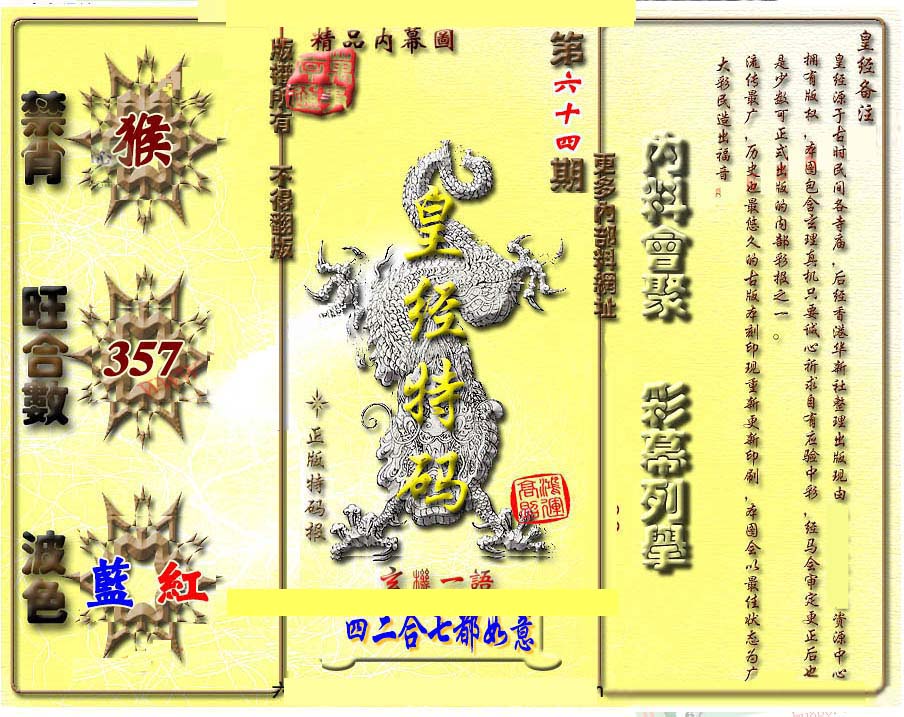 精品内幕圖
版增所有 不得翻版
第六十四期
更多內部料網址
禁肖
猴
旺合數
357
波色
藍 紅
皇经特码
正版特码报
鴻運高照
玄機一語
四二合七都如意
內料會聚
彩幕列舉
皇经备注
皇经源于古时民间各寺庙，后经香港华新社整理出版现由 资源中心
拥有版权，本图包含玄理真机只要诚心祈求自有应验中彩，经马会审定更正后也
是少数可正式出版的内部彩报之一。
流传最广，历史也最悠久的古版本刻印现重新更新印刷，本图会以最佳状态为广
大彩民造出福音